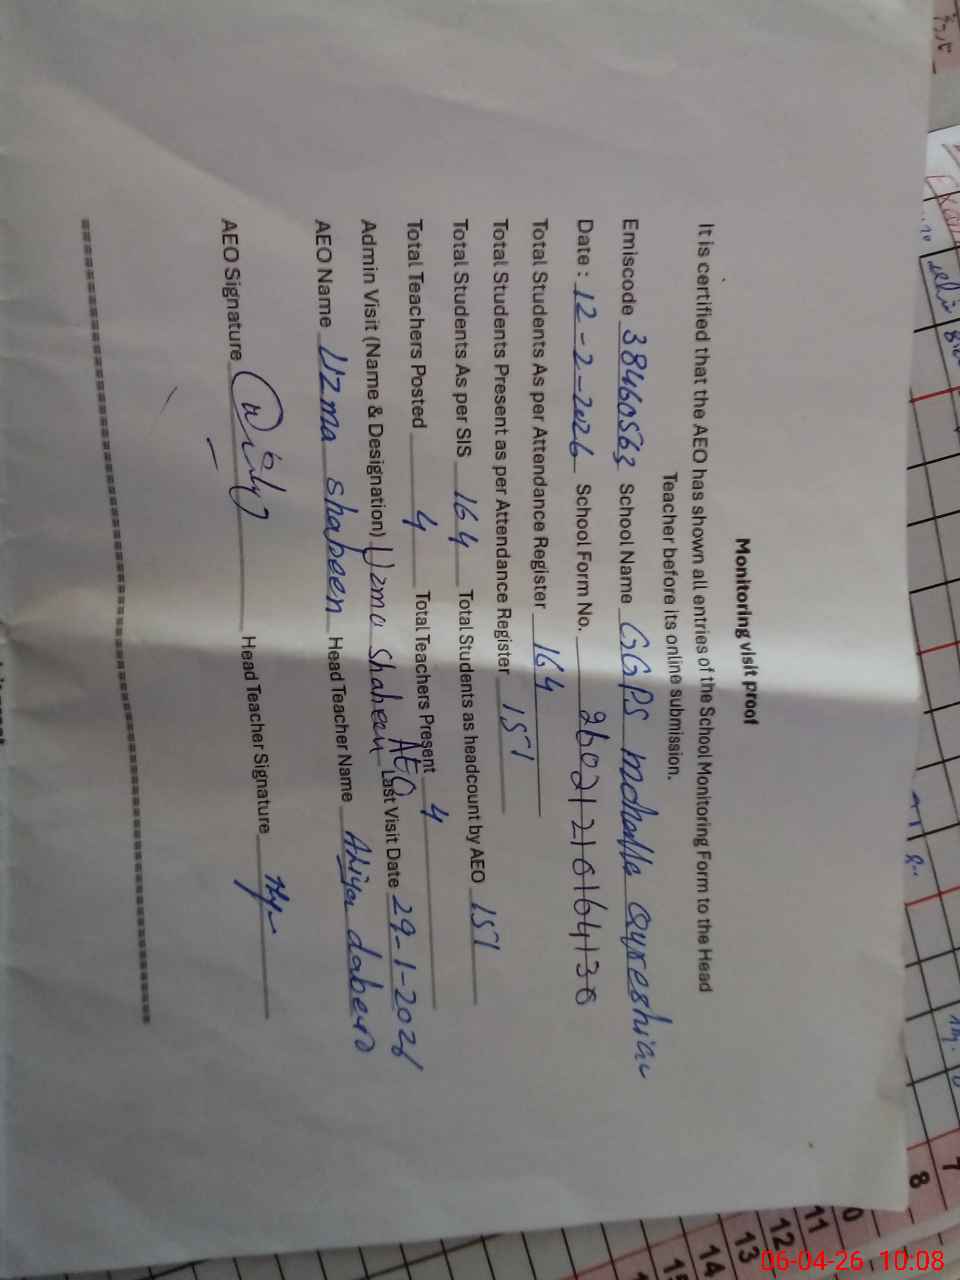 Monitoring visit proof
It is certified that the AEO has shown all entries of the School Monitoring Form to the Head
Teacher before its online submission.
Emiscode 38460563 School Name GGPS Mohalla Qureshian
Date : 12-2-2026 School Form No. 26021210164130
Total Students As per Attendance Register 164
Total Students Present as per Attendance Register 151
Total Students As per SIS 164 Total Students as headcount by AEO 151
Total Teachers Posted 4 Total Teachers Present 4
Admin Visit (Name & Designation) Uzma Shaheen AEO Last Visit Date 29-1-2026
AEO Name Uzma Shaheen Head Teacher Name
AEO Signature Head Teacher Signature
7
8
0
11
12
13
14
06-04-26 10:08